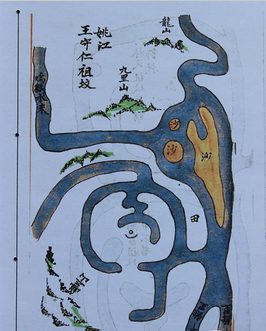 龍山
姚江
王守仁祖墳
九里山
沙
沙
沙
田